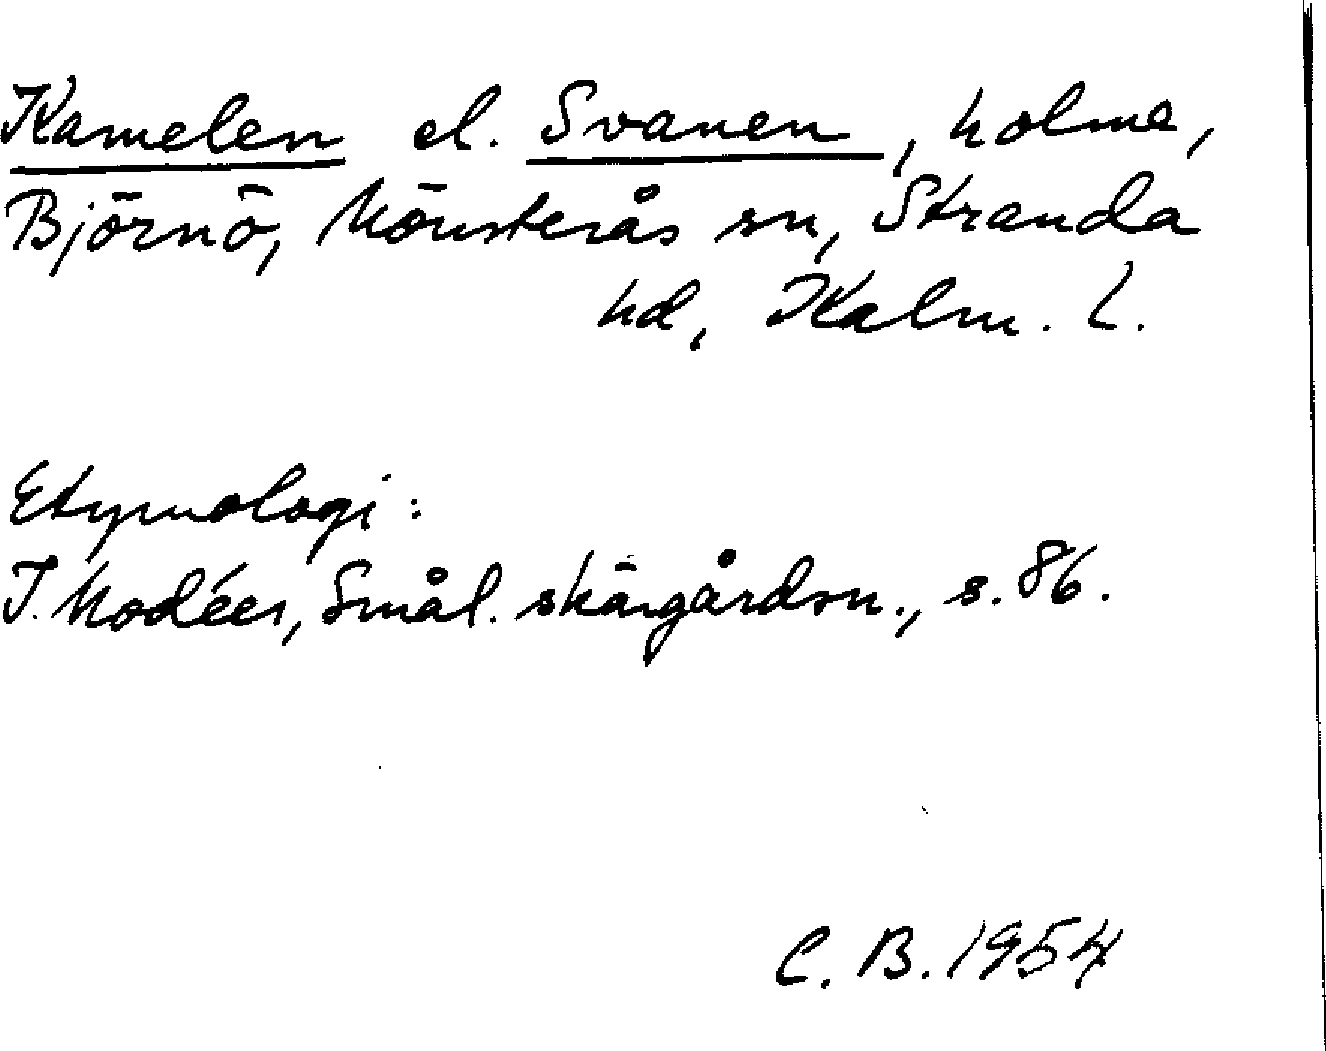 Kamelen el. Svanen, holme,
Björnö, Mönsterås sn, Stranda
hd, Kalm. l.
Etymologi:
I. Modéer, Smål. skärgårdsn., s. 86.
C. B. 1954